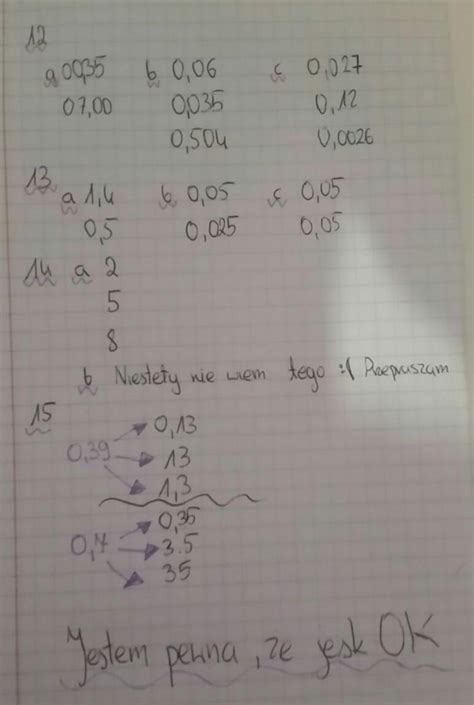 12
a 00,35 b 0,06 c 0,027
07,00 0,035 0,12
0,504 0,0026
13
a 1,4 b 0,05 c 0,05
0,5 0,025 0,05
14 a 2
5
8
b Niestety nie wiem tego :( Przepraszam
15
0,13
0,39 13
1,3
0,35
0,7 3.5
35
Jestem pewna, że jest OK